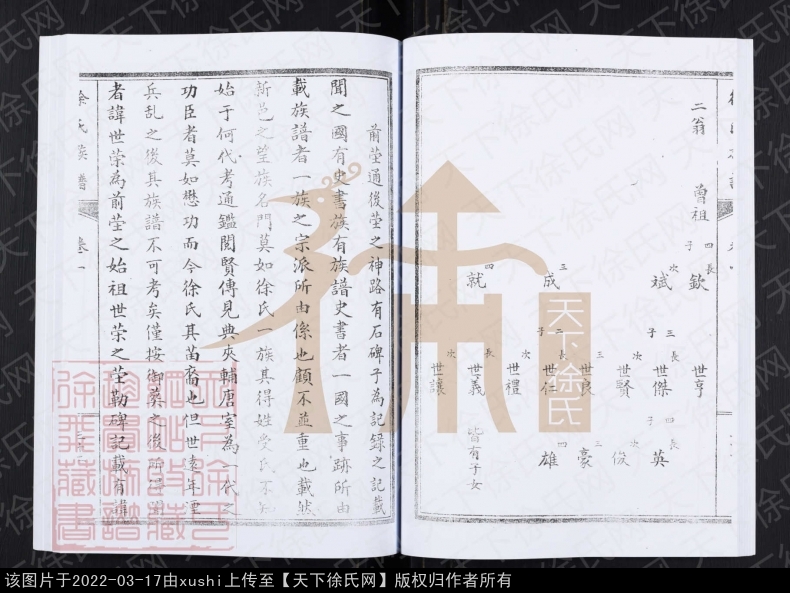 二翁
曾祖
四子
長 欽
次 斌
三 成
四 就
三子
長 世亨
次 世傑
三 世賢
世良
二子
長 世仁
次 世禮
長 世義
次 世讓
四子
長 英
次 俊
三 豪
四 雄
皆有子女
前塋通後塋之神路有石碑子為記錄之記載
聞之國有史書族有族譜史書者一國之事跡所由
載族譜者一族之宗派所由係也顧不並重也哉然
新邑之望族名門莫如徐氏一族其得姓受氏不知
始于何代考通鑑閱賢傳見典夾輔唐室為一代之
功臣者莫如懋功而今徐氏其苗裔也但世遠年湮
兵乱之後其族譜不可考矣僅按御葬之後所
者諱世荣為前塋之始祖世荣之塋勒碑記載有諱
徐氏族譜
卷一
天下徐氏
天下徐氏网
该图片于2022-03-17由xushi上传至【天下徐氏网】版权归作者所有